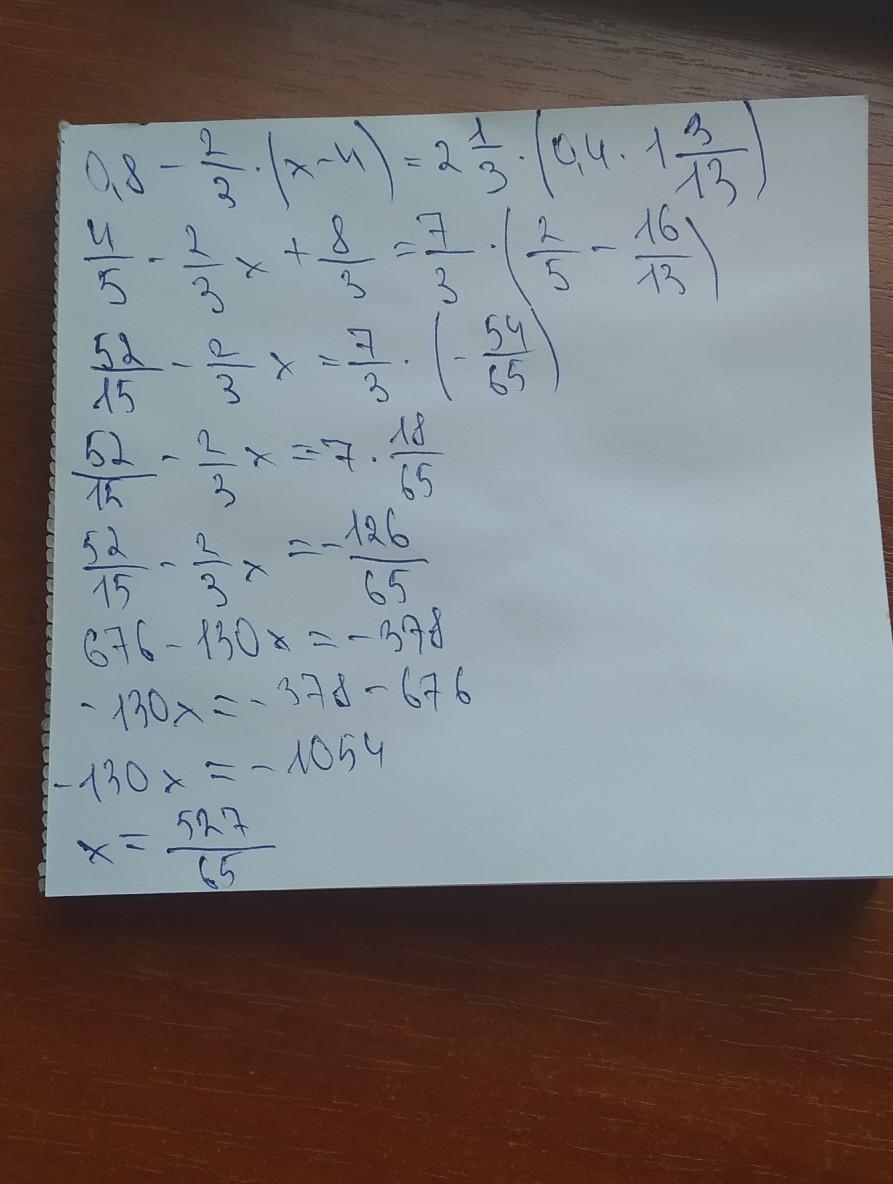 0,8 - 2/3 · (x-4) = 2 1/3 · (0,4 · 1 3/13)
4/5 - 2/3 x + 8/3 = 7/3 · (2/5 - 16/13)
52/15 - 2/3 x = 7/3 · (- 54/65)
52/15 - 2/3 x = 7 · 18/65
52/15 - 2/3 x = - 126/65
676 - 130x = - 378
- 130x = - 378 - 676
- 130x = - 1054
x = 527/65